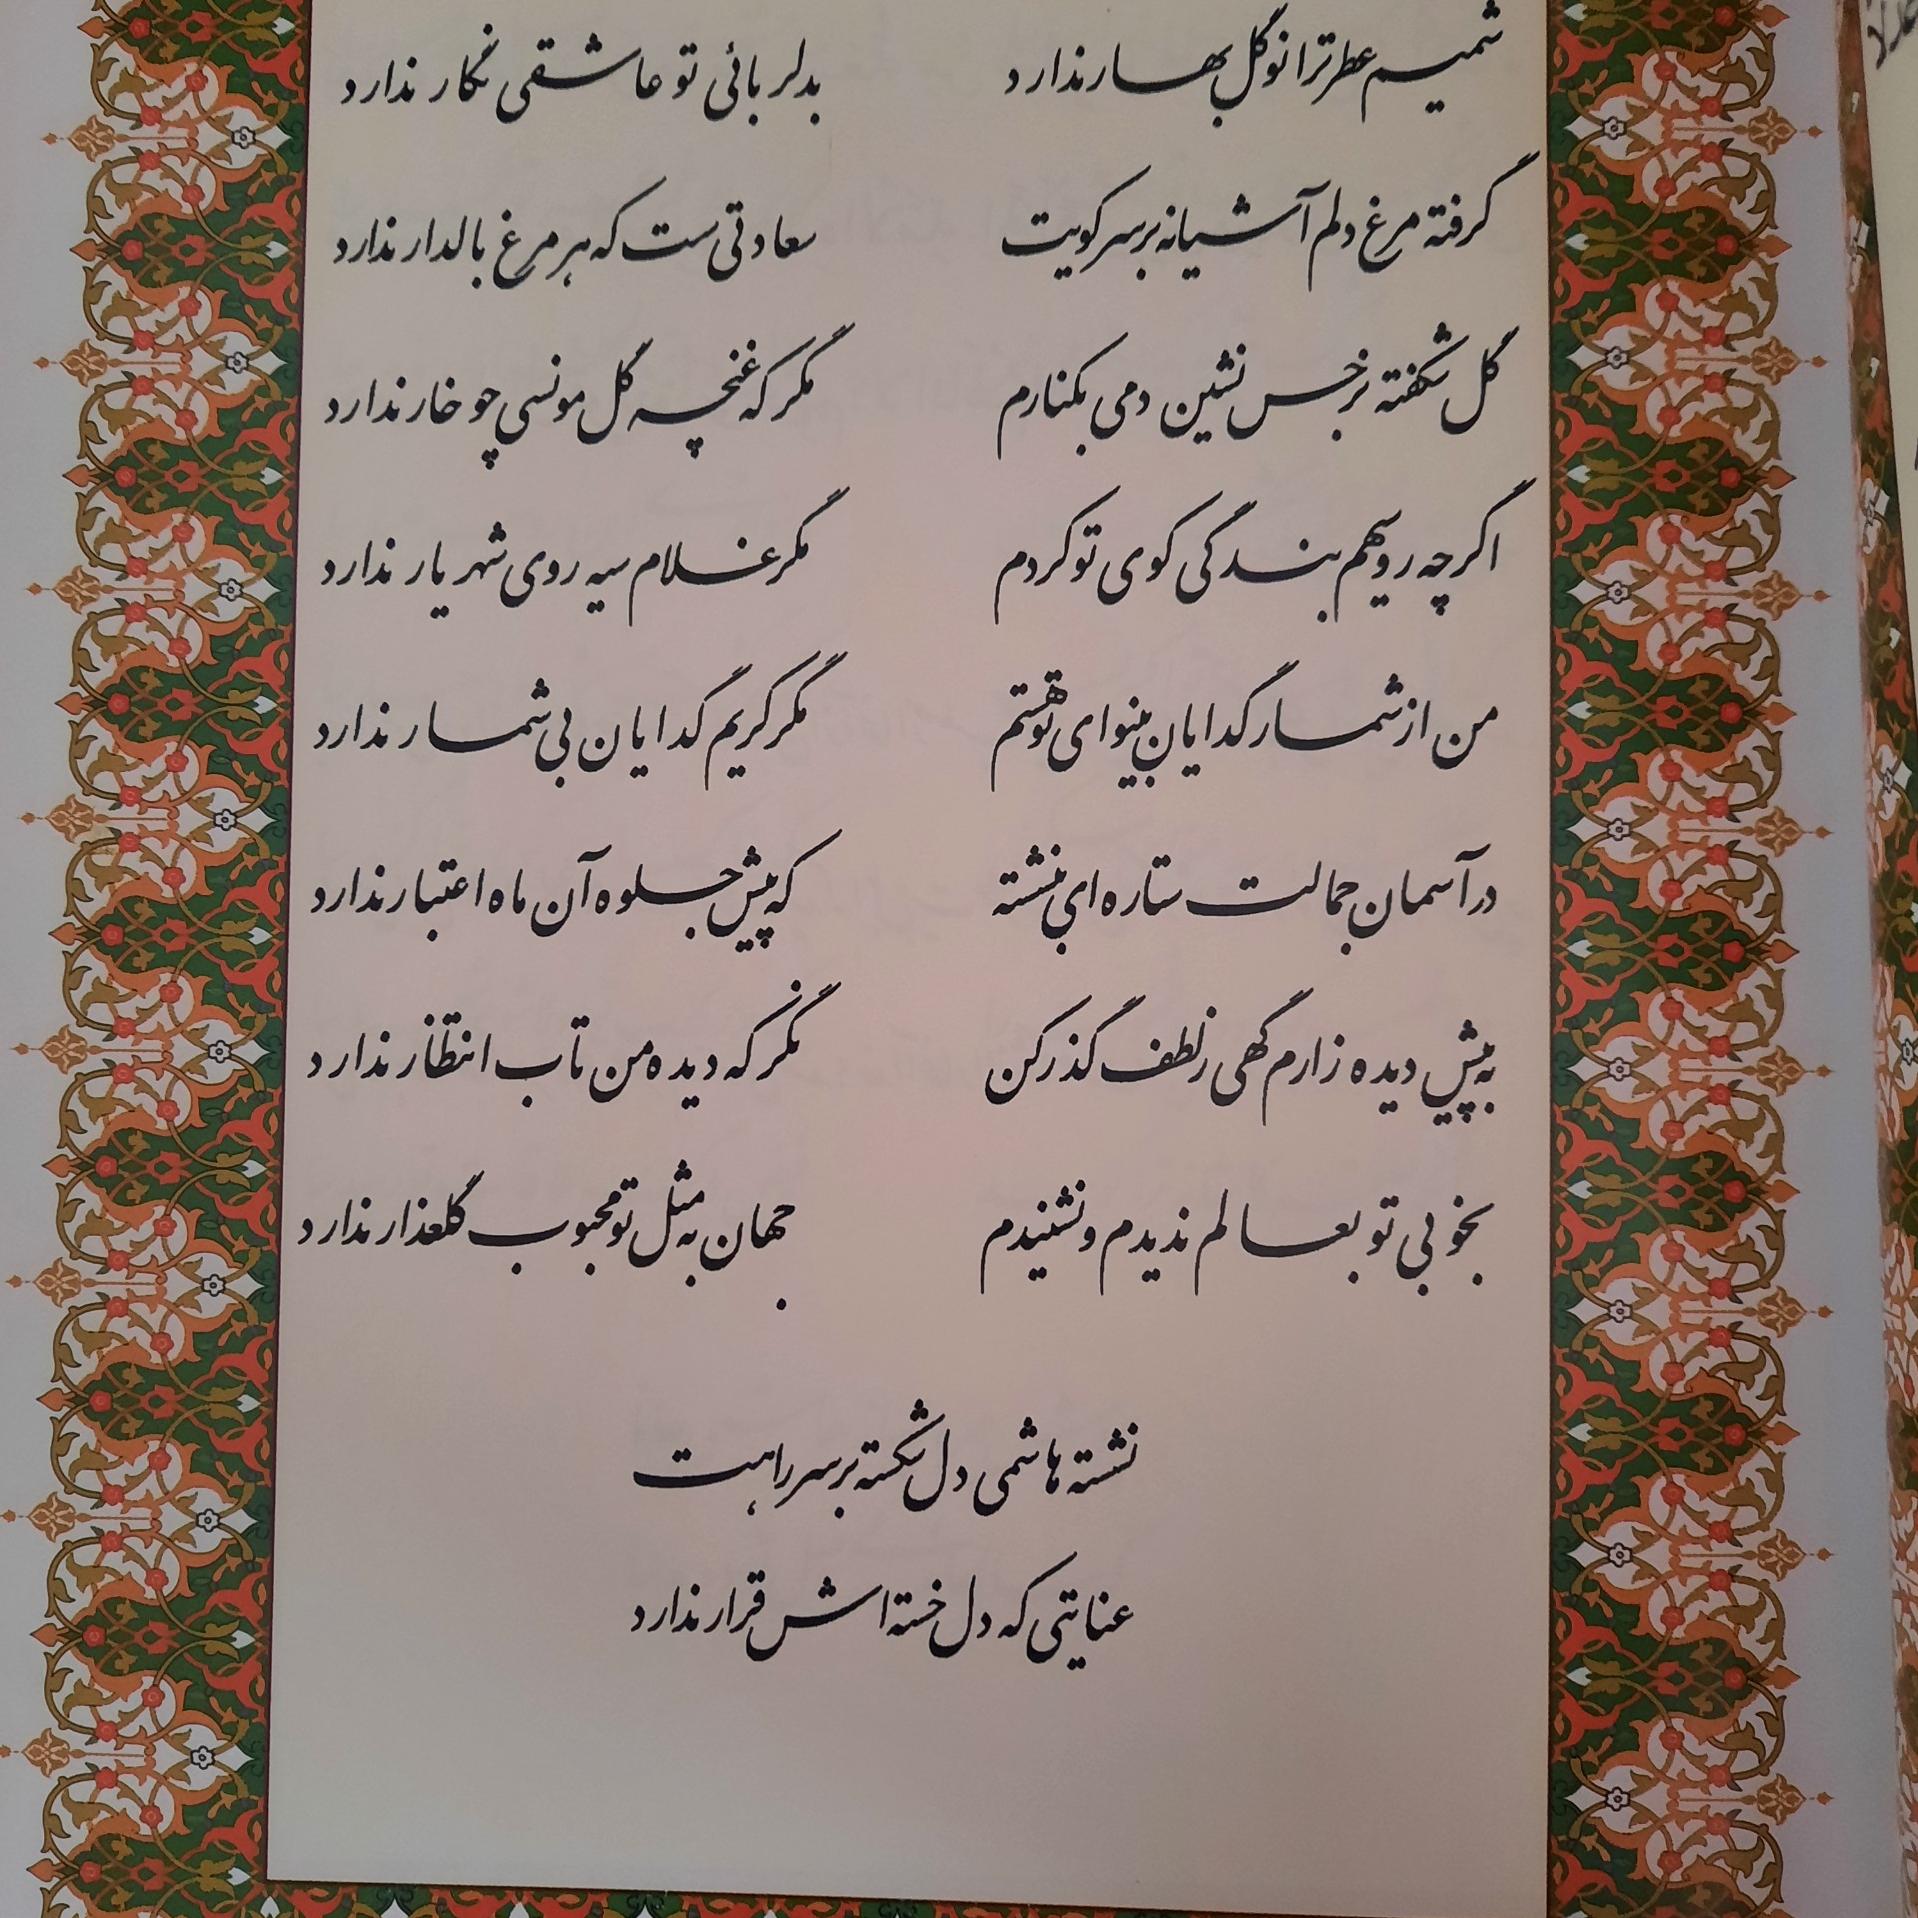 شمیم عطر ترا نوگل بهار ندارد بدلربائی تو عاشقی نگار ندارد
گرفته مرغ دلم آشیانه بر سر کویت سعادتی ست که هر مرغ بالدار ندارد
گل شکفته نرجس نشین دمی بکنارم مگر که غنچه گل مونسی چو خار ندارد
اگر چه روسیهم بندگی کوی تو کردم مگر غلام سیه روی شهریار ندارد
من از شمار گدایان بینوای تو هستم مگر کریم گدایان بی شمار ندارد
در آسمان جمالت ستاره ای بنشسته که پیش جلوه آن ماه اعتبار ندارد
به پیش دیده زارم گهی ز لطف گذر کن نگر که دیده من تاب انتظار ندارد
بخوبی تو بعالم ندیدم و نشنیدم جهان به مثل تو محبوب گلعذار ندارد
نشسته هاشمی دل شکسته بر سر راهت
عنایتی که دل خسته اش قرار ندارد